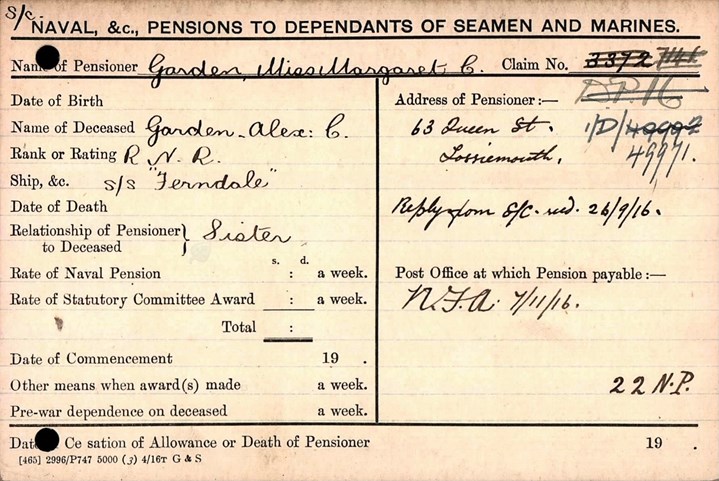 S/C.
NAVAL, &c., PENSIONS TO DEPENDANTS OF SEAMEN AND MARINES.
Name of Pensioner Garden, Miss Margaret C. Claim No. 3372
D.P. 16
Date of Birth
Name of Deceased Garden - Alex: C.
Rank or Rating R. N. R.
Ship, &c. S/S "Ferndale"
Date of Death
Relationship of Pensioner to Deceased } Sister
s. d.
Rate of Naval Pension : a week.
Rate of Statutory Committee Award : a week.
Total :
Date of Commencement 19 .
Other means when award(s) made a week.
Pre-war dependence on deceased a week.
Address of Pensioner:—
63 Queen St. 1/D/49992
Lossiemouth. 49971.
Reply from S/C. recd. 26/9/16.
Post Office at which Pension payable:—
N.F.A. 7/11/16.
22 N.P.
Date Ce sation of Allowance or Death of Pensioner 19 .
[465] 2996/P747 5000 (3) 4/16T G & S